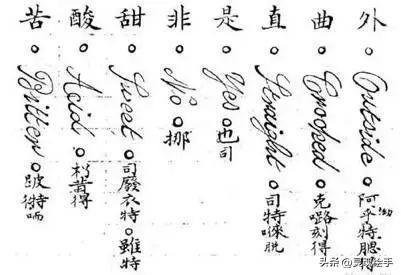 外 Outside 阿乎特腮
曲 Crooked 克嚕刻得
直 Straight 司特脱
是 Yes 也司
非 No 挪
甜 Sweet 司廢衣特 雖特
酸 Acid 得
苦 Bitter 跛特
头条 @灵魂绘手